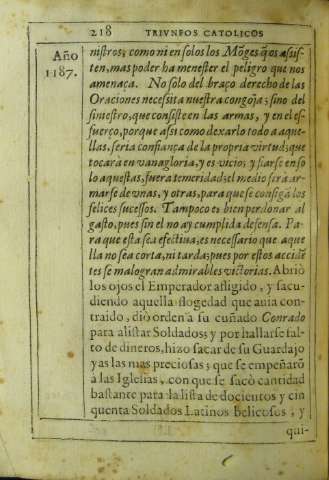 218 TRIVNFOS CATOLICOS
Año
1187.
nistros, como ni en solos los Mõges q̃os assis-
ten, mas poder ha menester el peligro que nos
amenaça. No solo del braço derecho de las
Oraciones necessita nuestra congoja; sino del
siniestro, que consiste en las armas, y en el es-
fuerço, porque assi como dexarlo todo a aque-
llas, seria confiança de la propria virtud, que
tocarà en vanagloria, y es vicio; y fiarse en so
lo aquestas, fuera temeridad; el medio serà ar-
marse de vnas, y otras, para que se consigã los
felices sucessos. Tampoco es bien perdonar al
gasto, pues sin el no ay cumplida defensa. Pa-
ra que esta sea efectiua, es necessario que aque
lla no sea corta, ni tarda; pues por estos accidẽ
tes se malogran admirables victorias. Abriò
los ojos el Emperador afligido, y sacu-
diendo aquella flogedad que auia con-
traido, diò orden a su cuñado Conrado
para alistar Soldados; y por hallarse fal-
to de dineros, hizo sacar de su Guardajo
yas las mas preciosas; que se empeñarõ
à las Iglesias, con que se sacò cantidad
bastante para la lista de docientos y cin
quenta Soldados Latinos belicosos, y
qui-